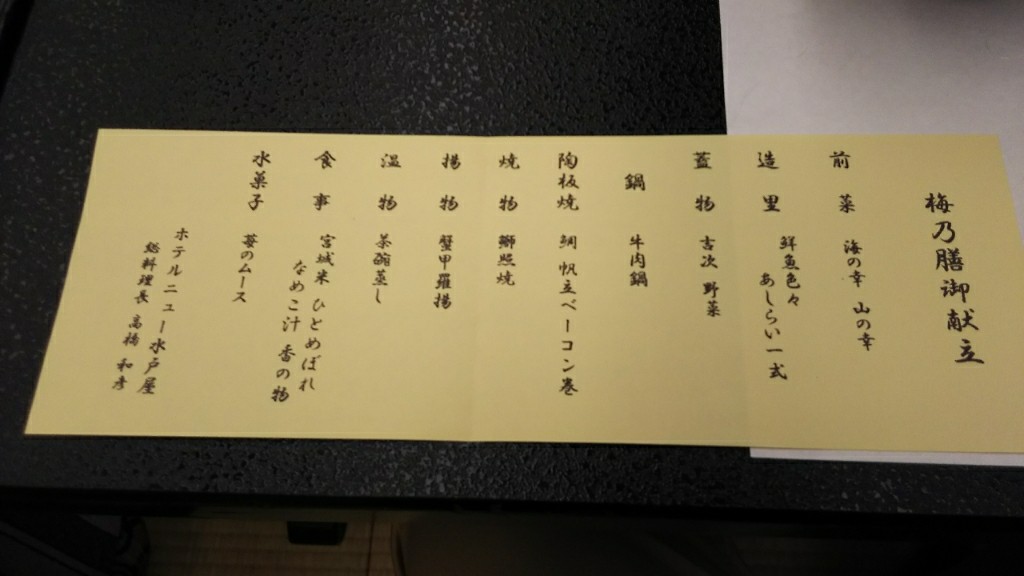 梅乃膳御献立
前菜 海の幸 山の幸
造里 鮮魚色々
あしらい一式
蓋物 吉次 野菜
鍋 牛肉鍋
陶板焼 鯛 帆立ベーコン巻
焼物 鰤照焼
揚物 蟹甲羅揚
温物 茶碗蒸し
食事 宮城米 ひとめぼれ
なめこ汁 香の物
水菓子 苺のムース
ホテルニュー水戸屋
総料理長 高橋 和彦